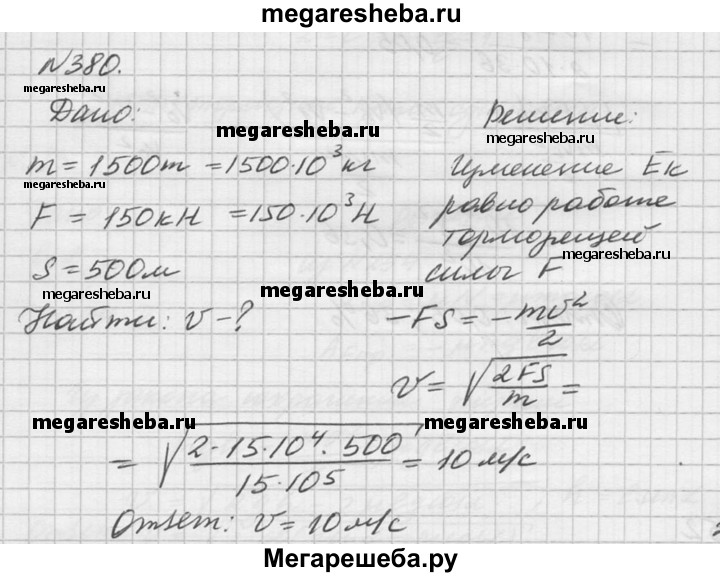 megaresheba.ru
N380.
megaresheba.ru
Дано:
megaresheba.ru
Решение:
megaresheba.ru
m = 1500т = 1500·10³ кг
megaresheba.ru
Изменение Eк
F = 150кН = 150·10³ Н
равно работе
тормозящей
megaresheba.ru
S = 500м
силы F
megaresheba.ru
megaresheba.ru
Найти: v - ?
-FS = -mv²/2
v = √(2FS/m) =
megaresheba.ru
megaresheba.ru
= √(2·15·10⁴·500/15·10⁵) = 10 м/с
Ответ: v = 10 м/с
Мегарешеба.ру